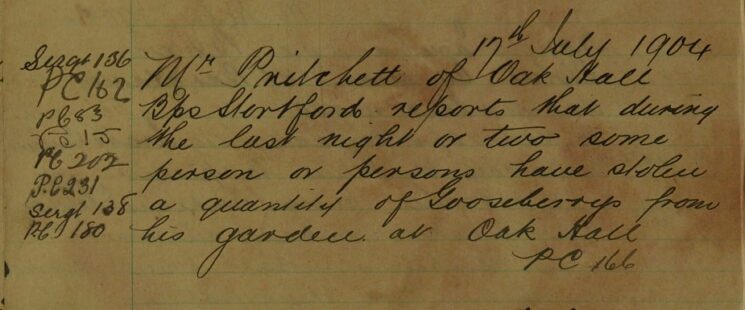 17th July 1904
Sergt 136
PC 162
PC 83
PC 15
PC 202
P.C 231
Sergt 138
P.C 180
Mr Pritchett of Oak Hall
Bps Stortford reports that during
the last night or two some
person or persons have stolen
a quantity of Gooseberrys from
his garden at Oak Hall
PC 166